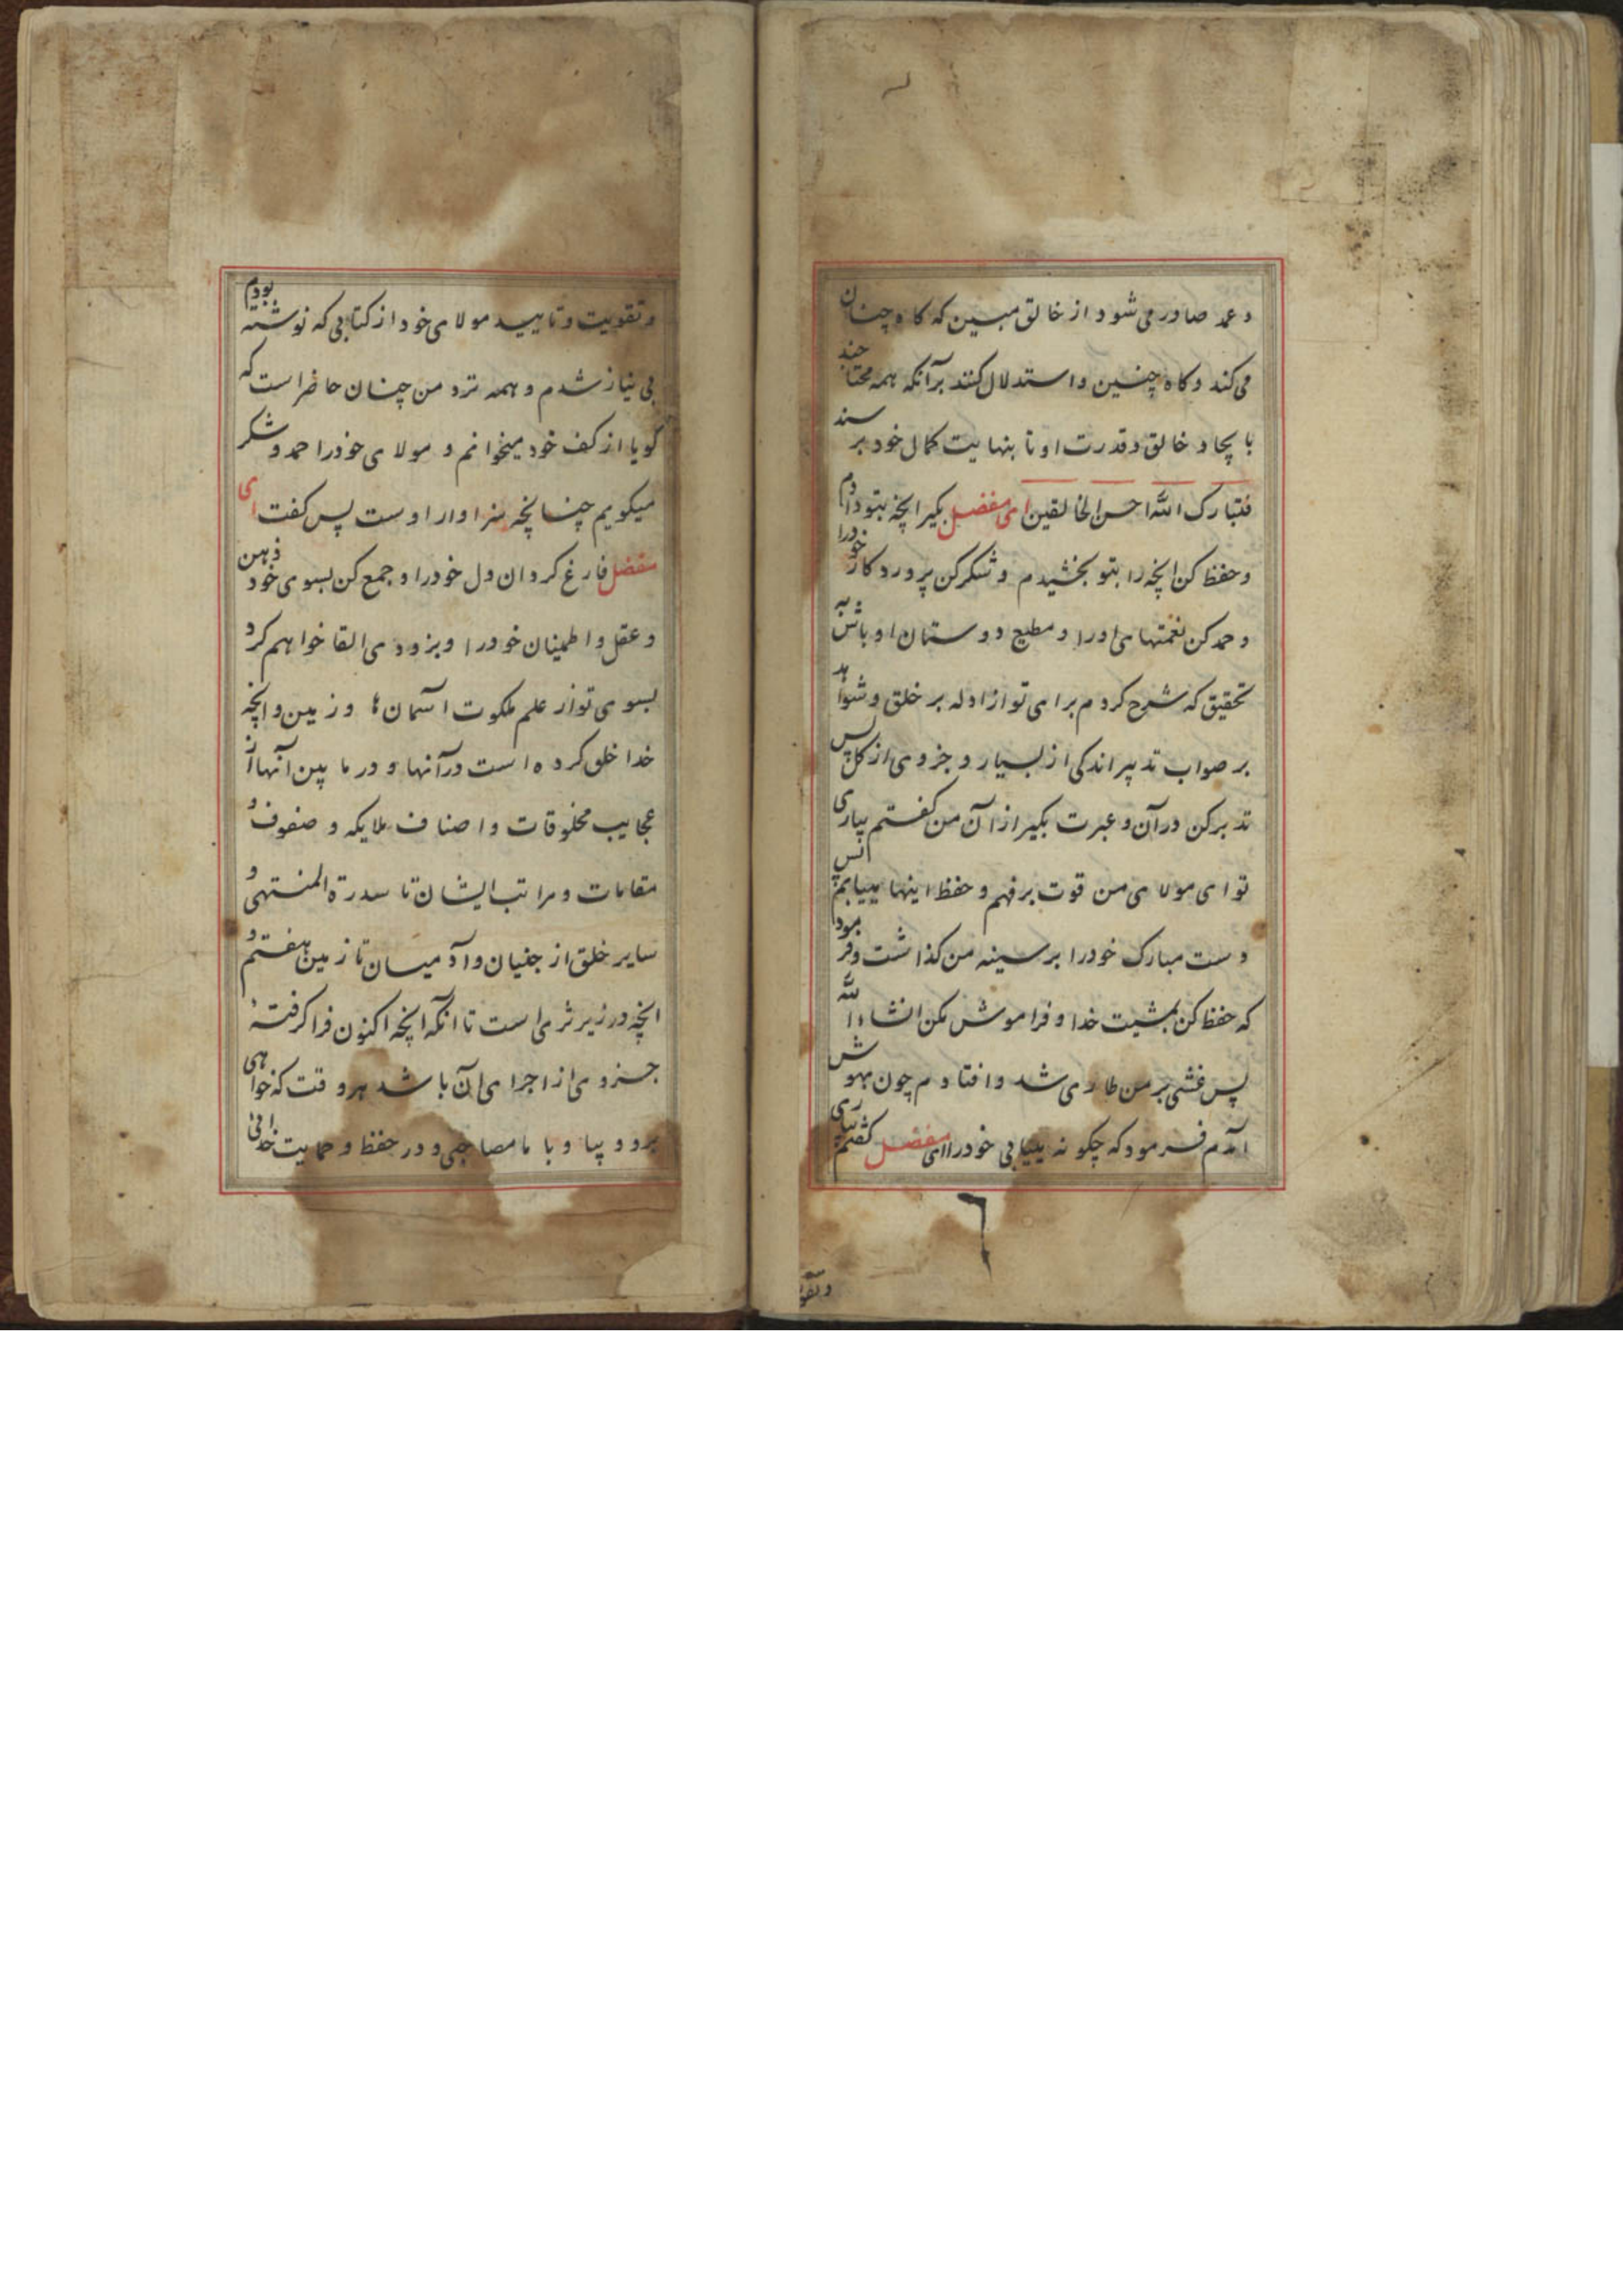 و عمد صادر می شود از خالق مبین که کاه چنان
می کند و کاه چنین و استدلال کنند برآنکه همه محتاجند
بایجاد خالق و قدرت او تا بنهایت کمال خود برسند
فتبارک الله احسن الخالقین ای مفضل بکیر انچه بتو دادم
و حفظ کن انچه را بتو بخشیدم و شکر کن پروردکار خودرا
و حمد کن نعمتهای اورا و مطیع دوستان او باش به
تحقیق که شرح کردم برای تو از ادله بر خلق و شواهد
بر صواب تدبیر اندکی از بسیار و جزوی از کل پس
تدبر کن در آن و عبرت بکیر از آن من کفتم بیاری
تو ای مولای من قوت بر فهم و حفظ اینها مییابم پس
دست مبارک خودرا بر سینه من کذاشت و فرمود
که حفظ کن بمشیت خدا و فراموش مکن انشاء الله
پس غشی بر من طاری شد و افتادم چون بهوش
آمدم فرمود که چکونه مییابی خودرا ای مفضل کفتم بیاری
و تقو
و تقویت و تایید مولای خود از کتابی که نوشته بودم
بی نیاز شدم و همه نزد من چنان حاضر است که
کویا از کف خود میخوانم و مولای خودرا حمد و شکر
میکویم چنانچه سزاوار اوست پس کفت ای
مفضل فارغ کردان دل خودرا و جمع کن بسوی خود ذهن
و عقل و اطمینان خودرا و بزودی القا خواهم کرد
بسوی تو از علم ملکوت آسمان ها و زمین و انچه
خدا خلق کرده است در آنها و در ما بین آنها از
عجایب مخلوقات و اصناف ملایکه و صفوف و
مقامات و مراتب ایشان تا سدرة المنتهی و
سایر خلق از جنیان و آدمیان تا زمین هفتم و
انچه در زیر ثری است تا آنکه انچه اکنون فرا کرفتهٔ
جزوی از اجزای آن باشد هر وقت که خواهی
برو و بیا و با ما مصاحبی و در حفظ و حمایت خدائی